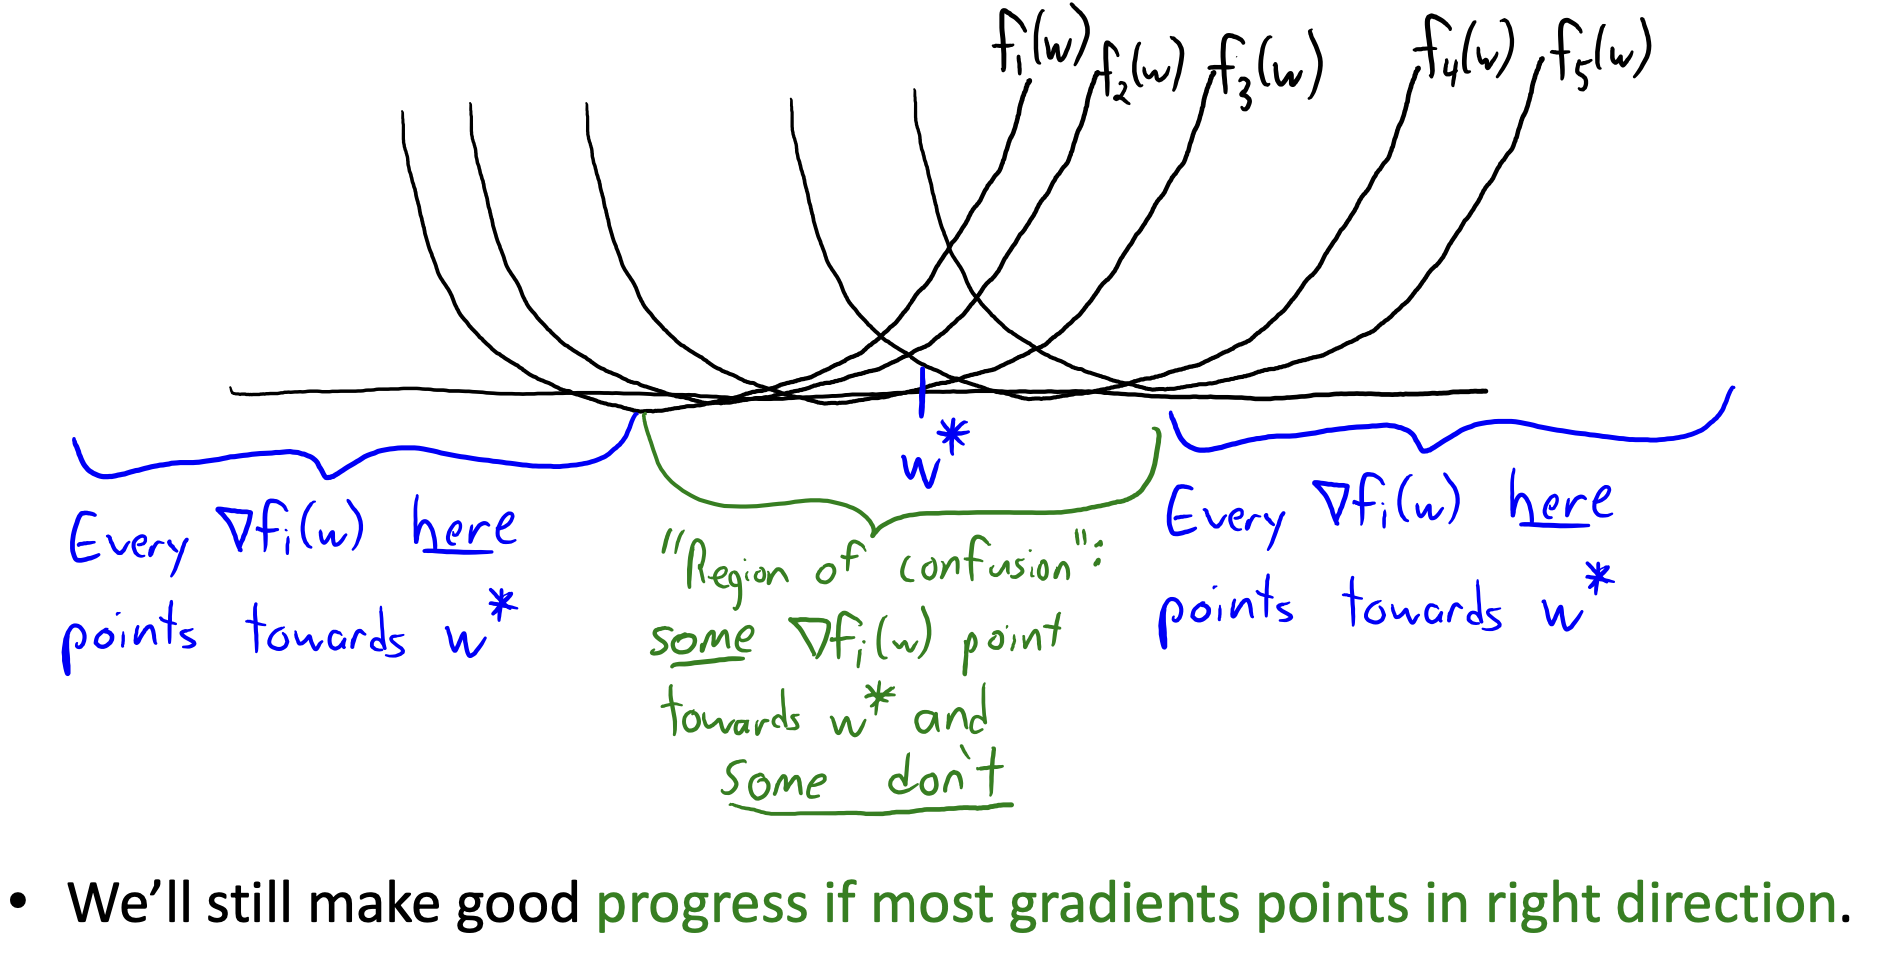 f₁(w) f₂(w) f₃(w) f₄(w) f₅(w)
w*
Every ∇fᵢ(w) here
points towards w*
"Region of confusion":
some ∇fᵢ(w) point
towards w* and
some don't
Every ∇fᵢ(w) here
points towards w*
• We'll still make good progress if most gradients points in right direction.